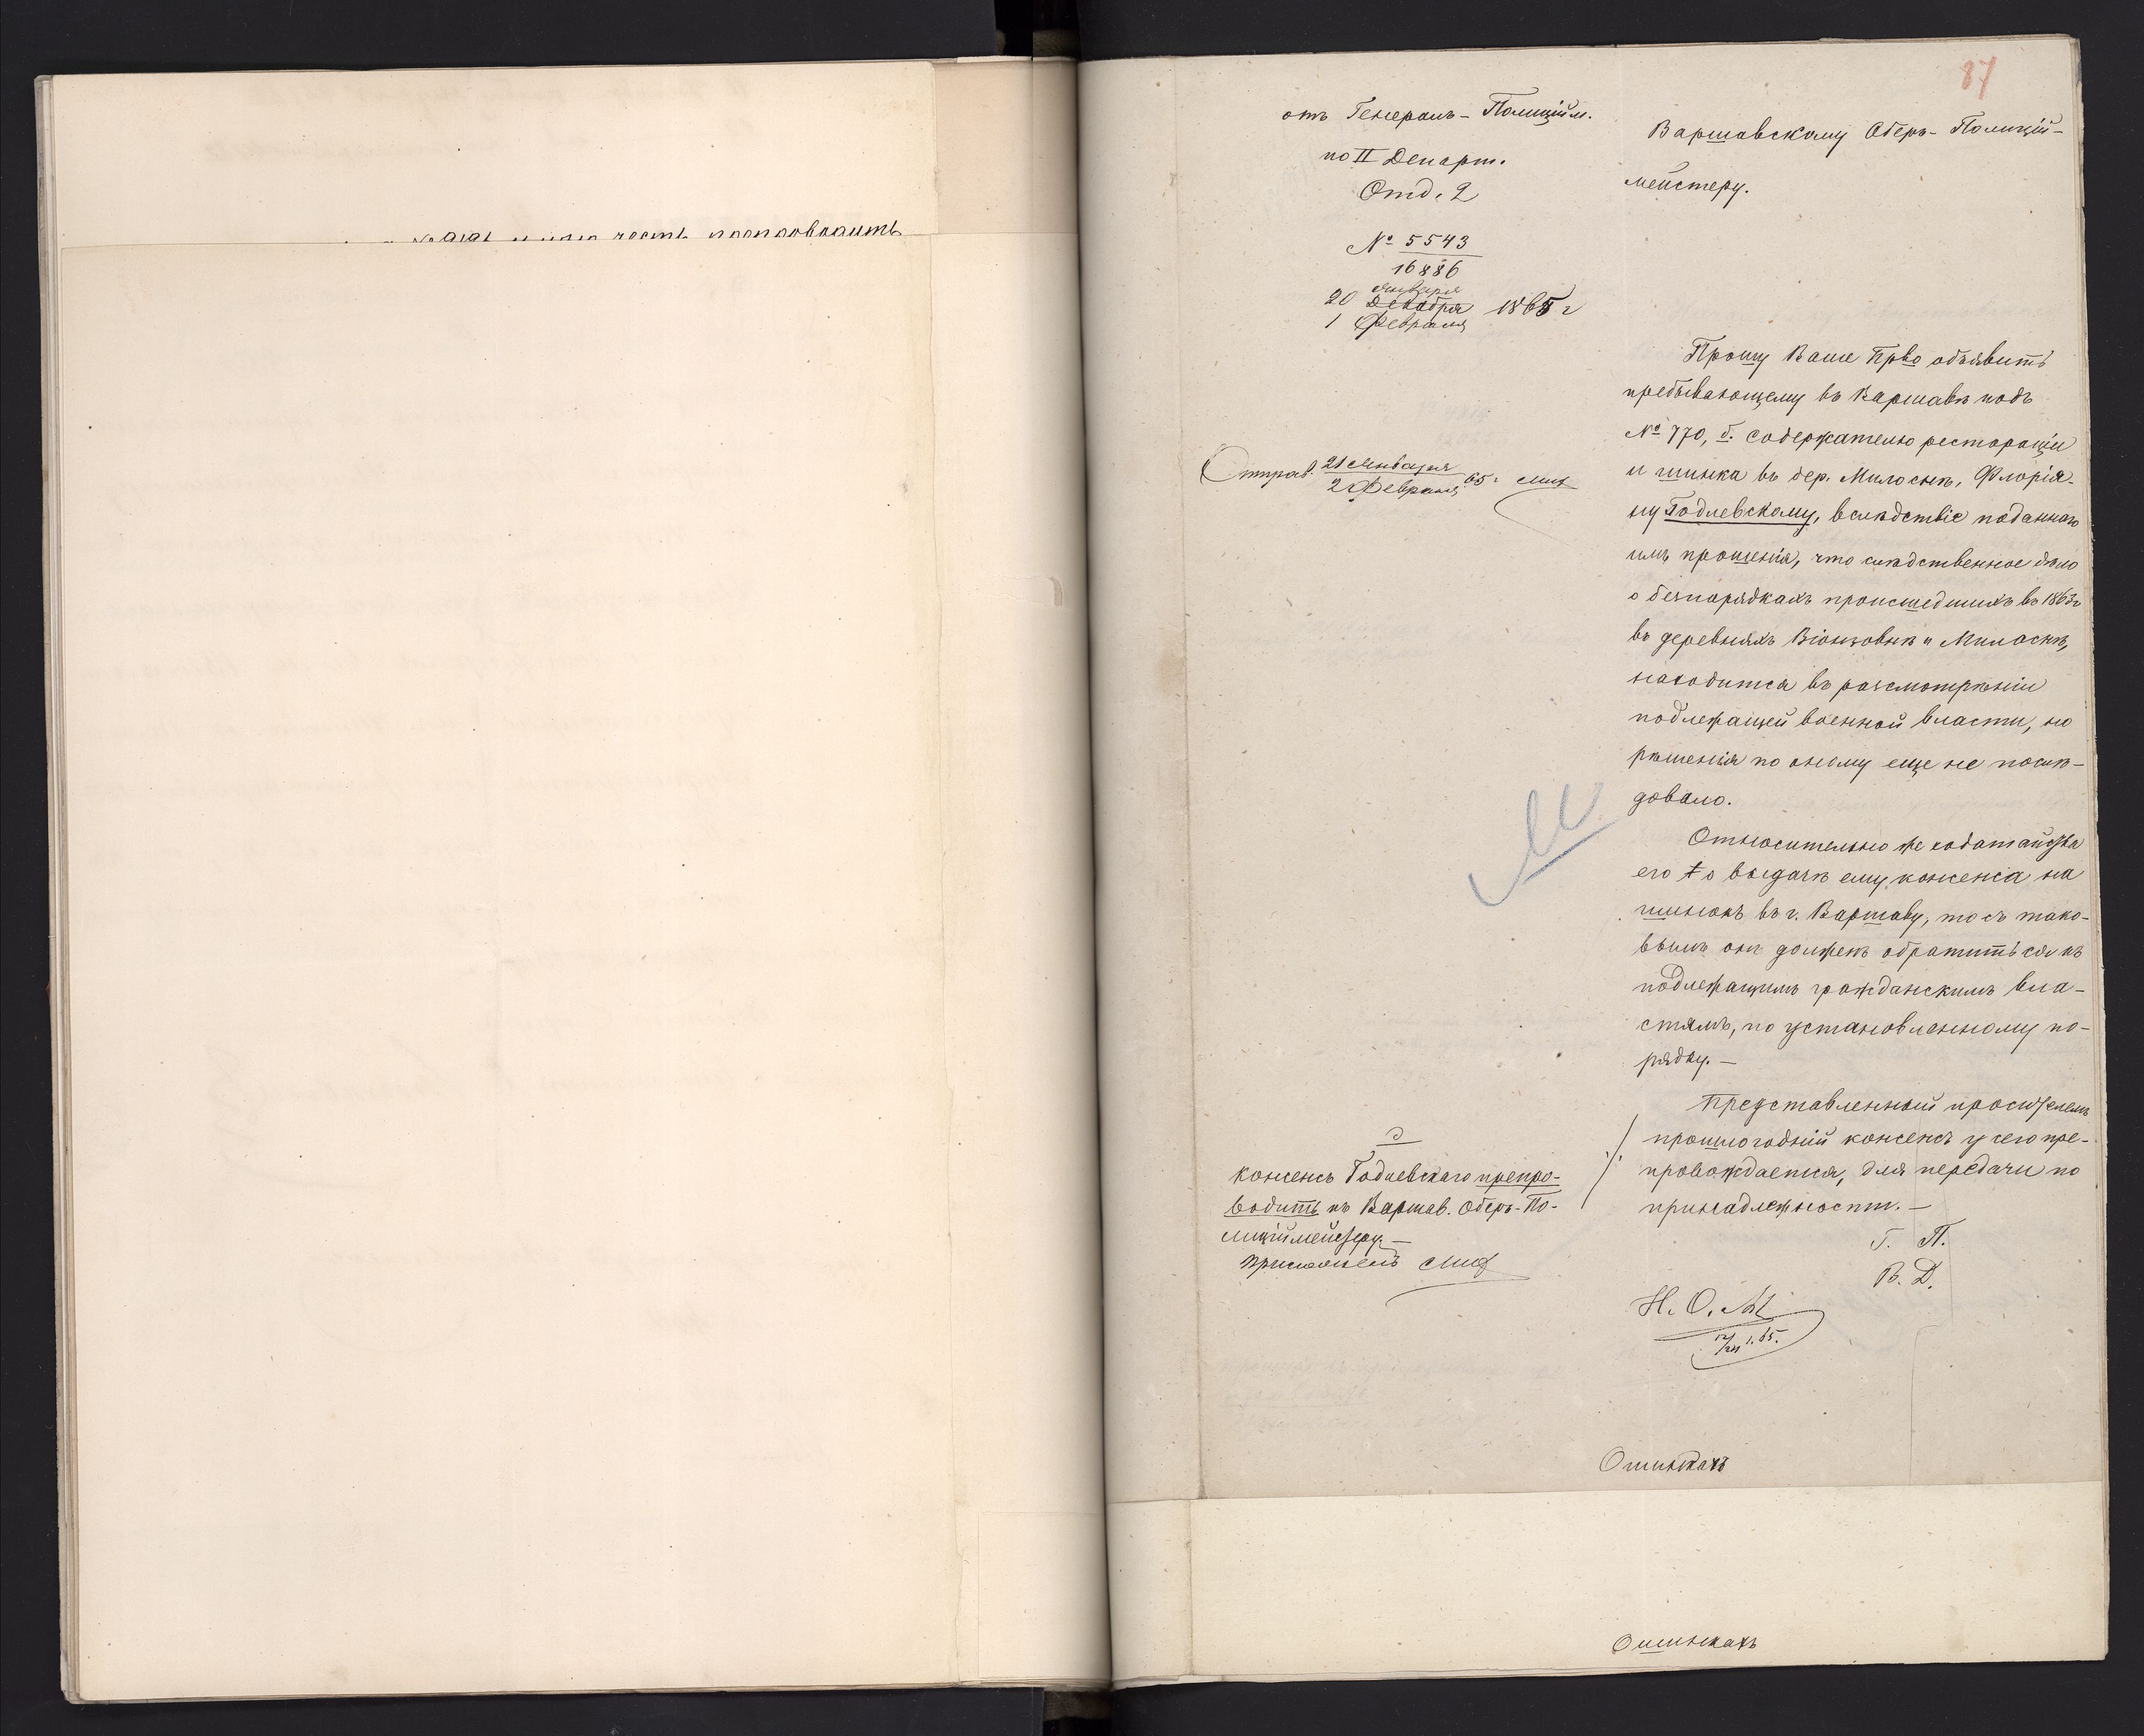 честь препроводить
87
отъ Генералъ-Полиційм.
по II Департ.
Отд. 2
№ 5543
16886
20 Января
Декабря 1865 г
1 Февраля
Варшавскому Оберъ-Полицій-
мейстеру.
Отправ. 21 Января
2 Февраля 65 г.
Прошу Ваше Прво объявить
пребывающему въ Варшавѣ подъ
№ 770, б. содержателю ресторации
и шинка въ дер. Милоснѣ, Флоріа-
ну Годлевскому, вслѣдствіе поданнаго
имъ прошенія, что слѣдственное дѣло
о безпорядкахъ происшедшихъ въ 1863 г
въ деревняхъ Віонзовнѣ и Милоснѣ,
находится въ разсмотрѣніи
подлежащей военной власти, но
рѣшенія по оному еще не послѣ-
довало.
Относительно же ходатайства
его о выдачѣ ему консенса на
шинокъ въ г. Варшаву, то съ тако-
вымъ онъ долженъ обратиться къ
подлежащимъ гражданскимъ вла-
стямъ, по установленному по-
рядку. —
Представленный просителемъ
прошлогодній консенсъ у сего пре-
провождается, для передачи по
принадлежности. —
Г. П.
В. Д.
Н. О. М
12/24 1. 65.
консенсъ Годлевскаго препро-
водить къ Варшав. Оберъ-По-
лиціймейстеру. —
приложенъ
О шинкахъ
О шинкахъ